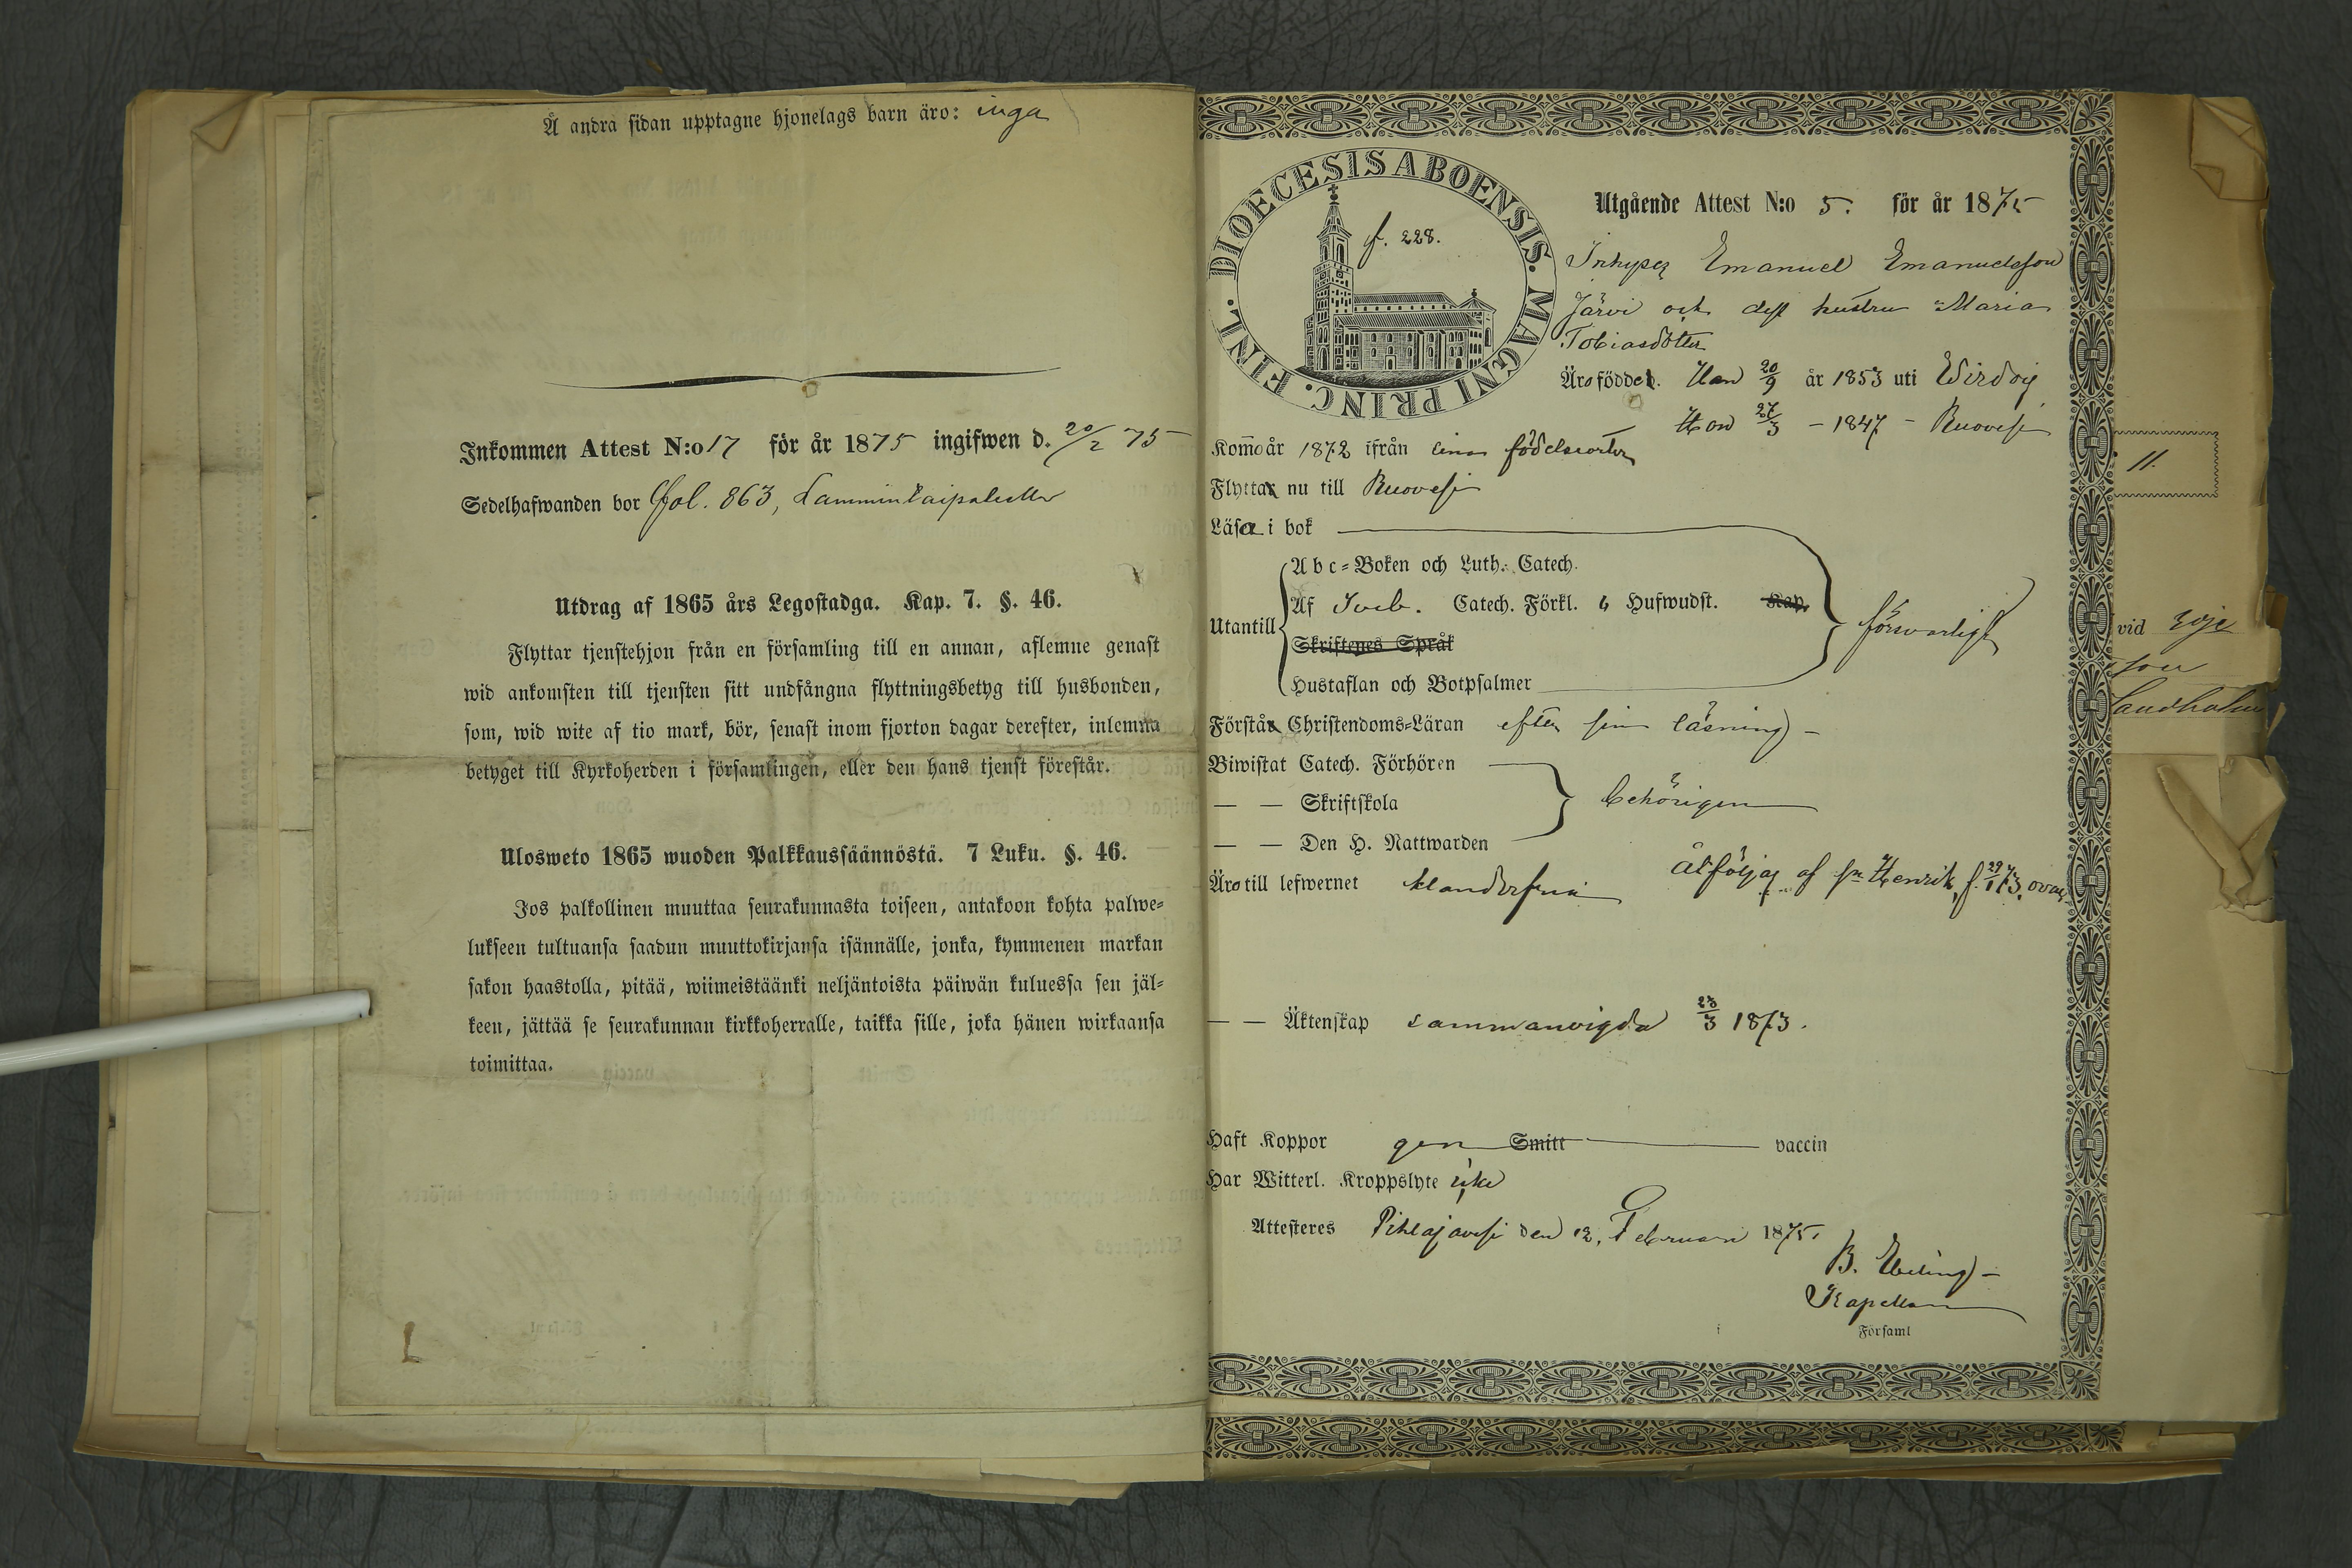 Å andra sidan upptagne hjonelags barn äro: inga
Inkommen Attest N:o 17 för år 1875 ingifwen d. 20/2 75
Sedelhafwanden bor Fol. 863, Lamminkaipaleella
Utdrag af 1865 års Legostadga. Kap. 7. §. 46.
Flyttar tjenstehjon från en församling till en annan, aflemne genast
wid ankomsten till tjensten sitt undfångna flyttningsbetyg till husbonden,
som, wid wite af tio mark, bör, senast inom fjorton dagar derefter, inlemna
betyget till Kyrkoherden i församlingen, eller den hans tjenst förestår.
Ulosweto 1865 wuoden Palkkaussäännöstä. 7 Luku. §. 46.
Jos palkollinen muuttaa seurakunnasta toiseen, antakoon kohta palwe-
lukseen tultuansa saadun muuttokirjansa isännälle, jonka, kymmenen markan
sakon haastolla, pitää, wiimeistäänki neljäntoista päiwän kuluessa sen jäl-
keen, jättää se seurakunnan kirkkoherralle, taikka sille, joka hänen wirkaansa
toimittaa.
DIOECESIS ABOENSIS. MAGNI PRINC. FINL.
f. 228.
Utgående Attest N:o 5. för år 1875
Inhyses Emanuel Emanuelsson
Järvi och dess hustru Maria
Tobiasdotter
Äro födde. Han 20/9 år 1853 uti Wirdois
Hon 27/3 - 1847 - Ruovesi
Kommo år 1872 ifrån sina födelseorter
Flytta nu till Ruovesi
Läsa i bok
Utantill
Abc-Boken och Luth. Catech.
Af Sveb. Catech. Förkl. 4 Hufwudst. Kap.
Skriftenes Språk
Hustaflan och Botpsalmer
försvarligt
Förstå Christendoms-Läran efter sin läsning -
Biwistat Catech. Förhören
— — Skriftskola
— — Den H. Nattwarden
behörigen
Äro till lefwernet klanderfria
Åtföljas af sn Henrik, f. 29/1 73, ovac.
— — Äktenskap sammanvigda 23/3 1873.
Haft Koppor gen Smitt vaccin
Har Witterl. Kroppslyte icke
Attesteres Pihlajavesi den 12. Februari 1875.
B. Ebeling -
Kapellan
i Församl
11.
vid
Sandholm